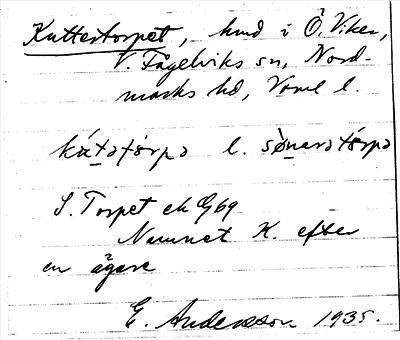 Kuttertorpet, hmd i Ö. Viker,
V. Fågelviks sn, Nord-
marks hd, Vrml l.
kát̯ətɔrpə l. sø̀nərətɔ́rpə
S. Torpet ek G69
Namnet K. efter
en ägare
E. Andersson 1935.